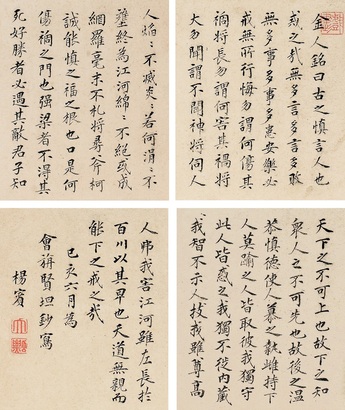 金人銘曰古之慎言人也
戒之哉無多言多言多敗
無多事多事多患安樂必
戒無所行悔勿謂何傷其
禍將長勿謂何害其禍將
大勿聞謂不聞神將伺人
人焰〻不滅炎〻若何涓〻不
壅終為江河綿〻不絕或成
網羅毫末不札將尋斧柯
誠能慎之福之根也口是何
傷禍之門也强梁者不得其
死好勝者必遇其敵君子知
天下之不可上也故下之知
衆人之不可先也故後之温
恭慎德使人慕之執雌持下
人莫踰之人皆取彼我獨守
此人皆惑之我獨不徙内藏
我智不示人技我雖尊高
人弗我害江河雖左長於
百川以其卑也天道無親而
能下之戒之哉
己亥六月為
會旃賢坦鈔寫
楊賓